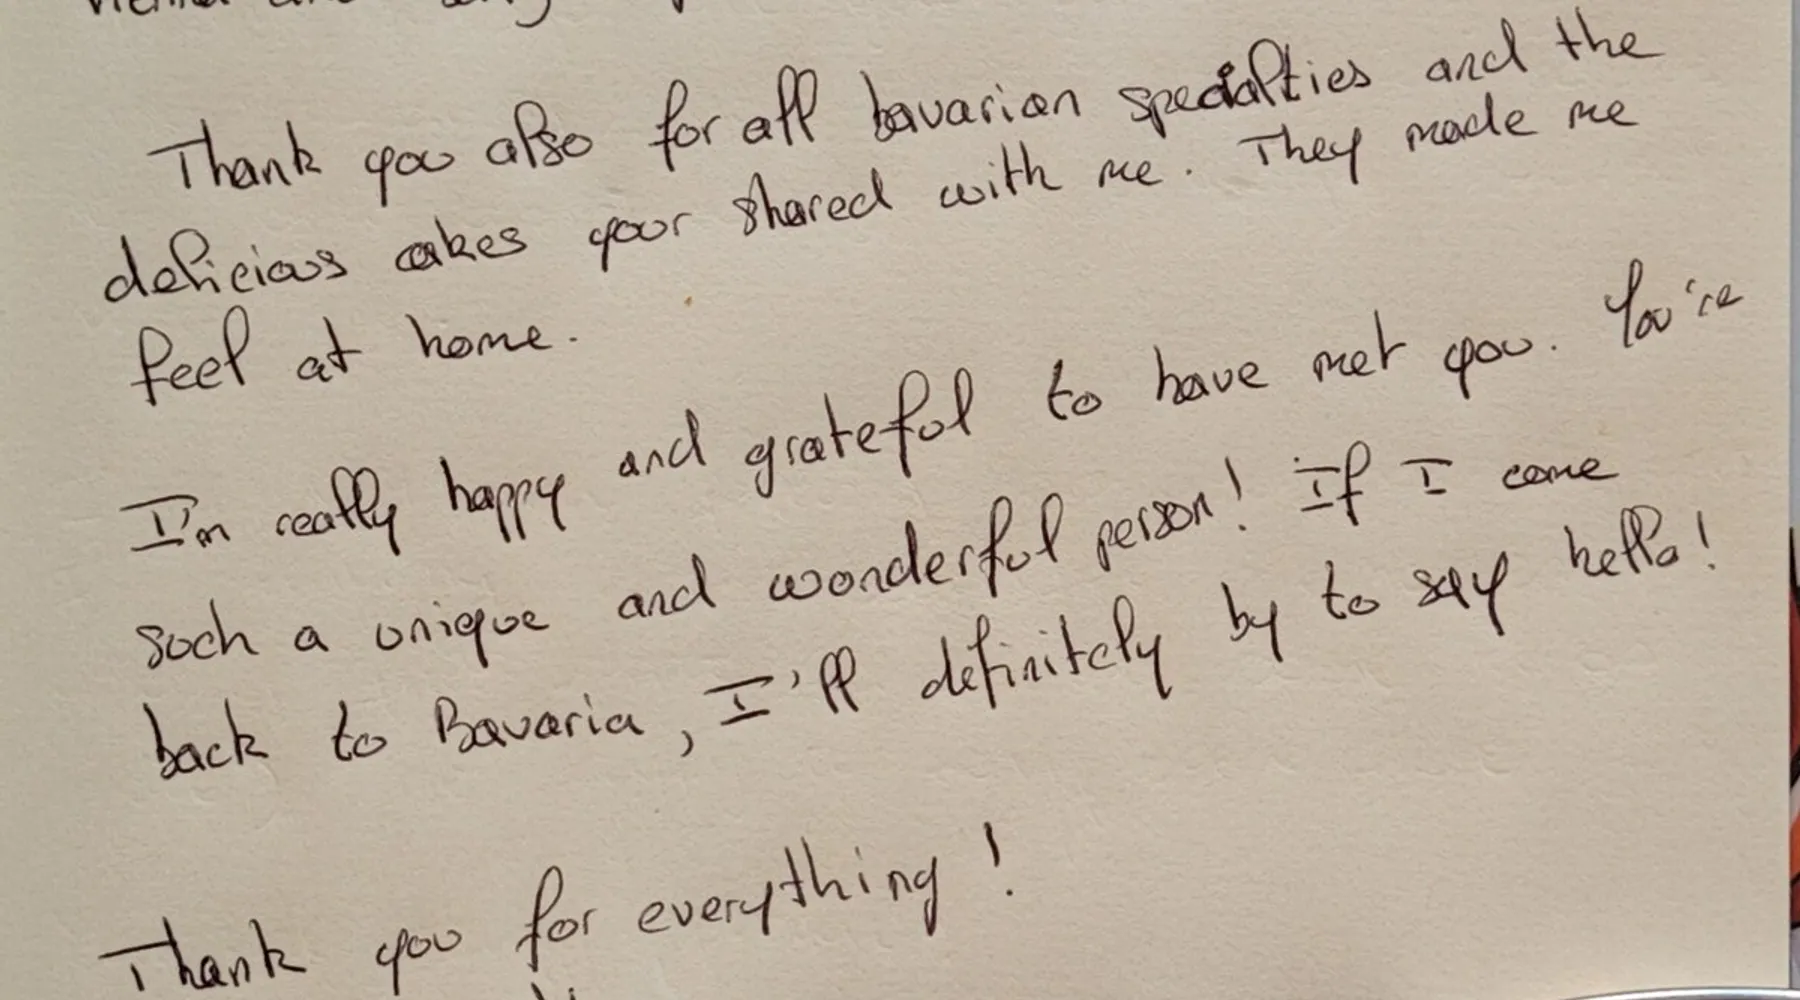 Thank you also for all bavarian specialties and the
delicious cakes your shared with me. They made me
feel at home.
I'm really happy and grateful to have met you. You're
such a unique and wonderful person! If I come
back to Bavaria, I'll definitely by to say hello!
Thank you for everything!